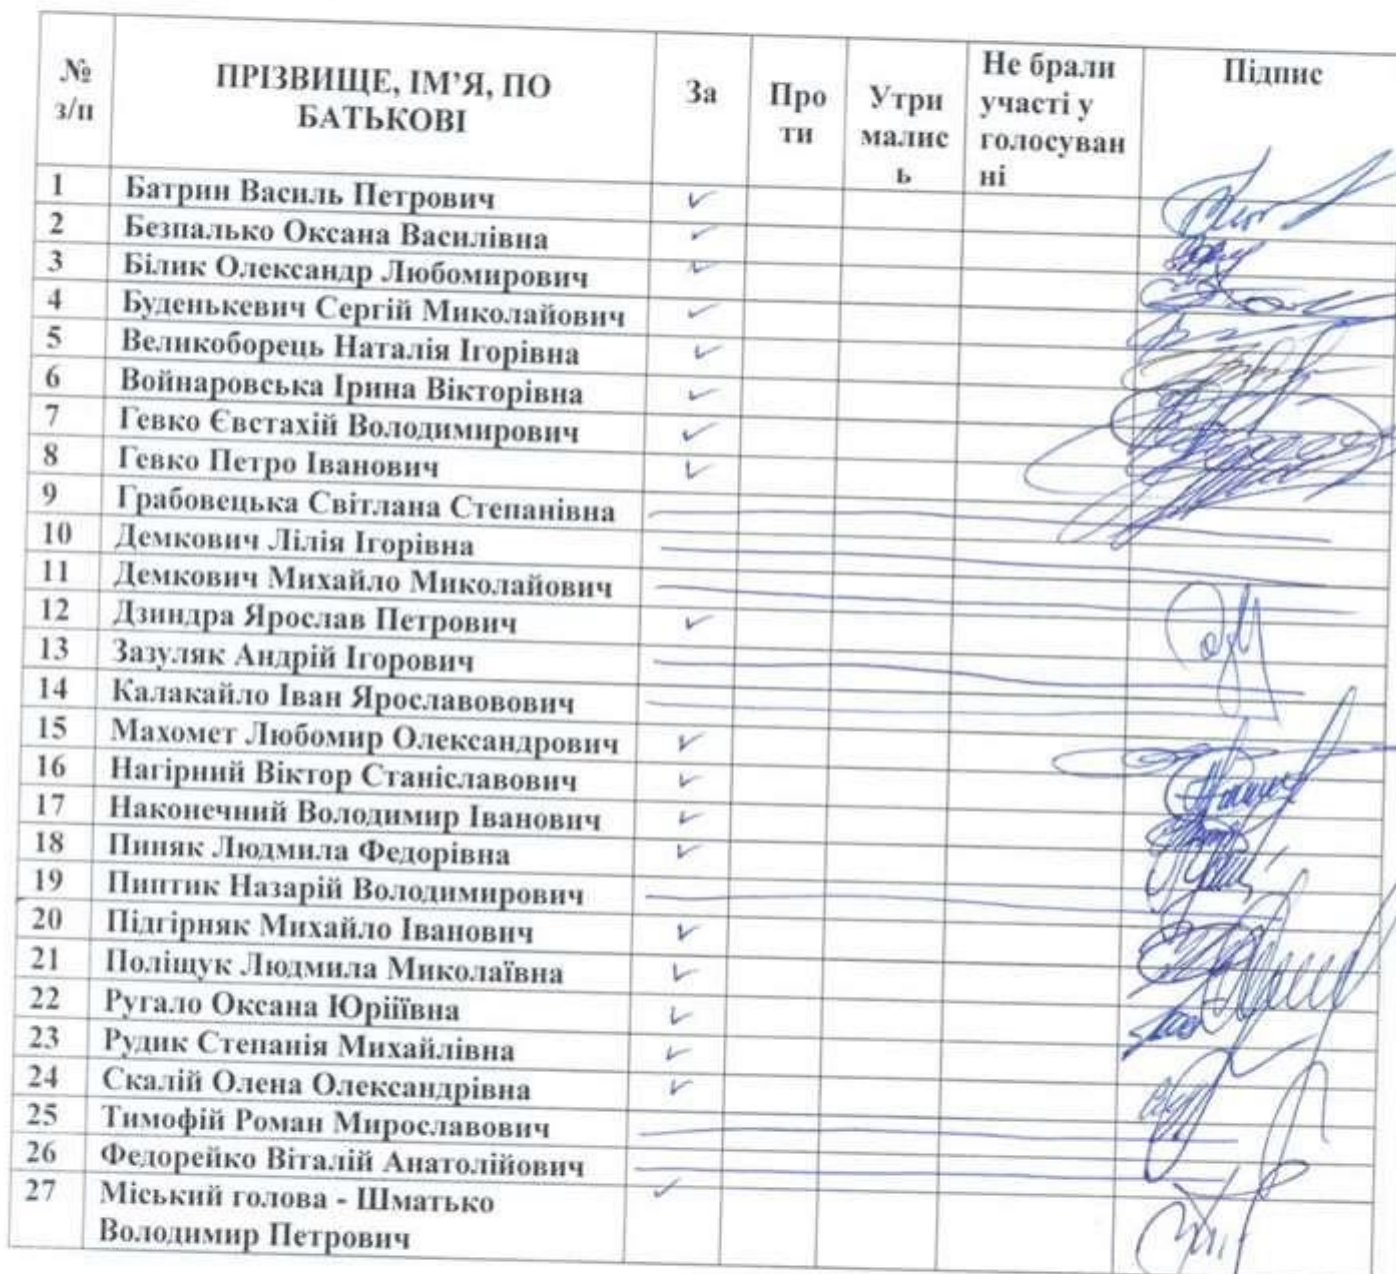 № з/п
ПРІЗВИЩЕ, ІМ’Я, ПО
БАТЬКОВІ
За
Про
ти
Утри
малис
ь
Не брали
участі у
голосуван
ні
Підпис
1 Батрин Василь Петрович ✓
2 Безпалько Оксана Василівна ✓
3 Білик Олександр Любомирович ✓
4 Буденькевич Сергій Миколайович ✓
5 Великоборець Наталія Ігорівна ✓
6 Войнаровська Ірина Вікторівна ✓
7 Гевко Євстахій Володимирович ✓
8 Гевко Петро Іванович ✓
9 Грабовецька Світлана Степанівна
10 Демкович Лілія Ігорівна
11 Демкович Михайло Миколайович
12 Дзиндра Ярослав Петрович ✓
13 Зазуляк Андрій Ігорович
14 Калакайло Іван Ярославовович
15 Махомет Любомир Олександрович ✓
16 Нагірний Віктор Станіславович ✓
17 Наконечний Володимир Іванович ✓
18 Пиняк Людмила Федорівна ✓
19 Пиптик Назарій Володимирович
20 Підгірняк Михайло Іванович ✓
21 Поліщук Людмила Миколаївна ✓
22 Ругало Оксана Юріїївна ✓
23 Рудик Степанія Михайлівна ✓
24 Скалій Олена Олександрівна ✓
25 Тимофій Роман Мирославович
26 Федорейко Віталій Анатолійович
27 Міський голова - Шматько ✓
Володимир Петрович